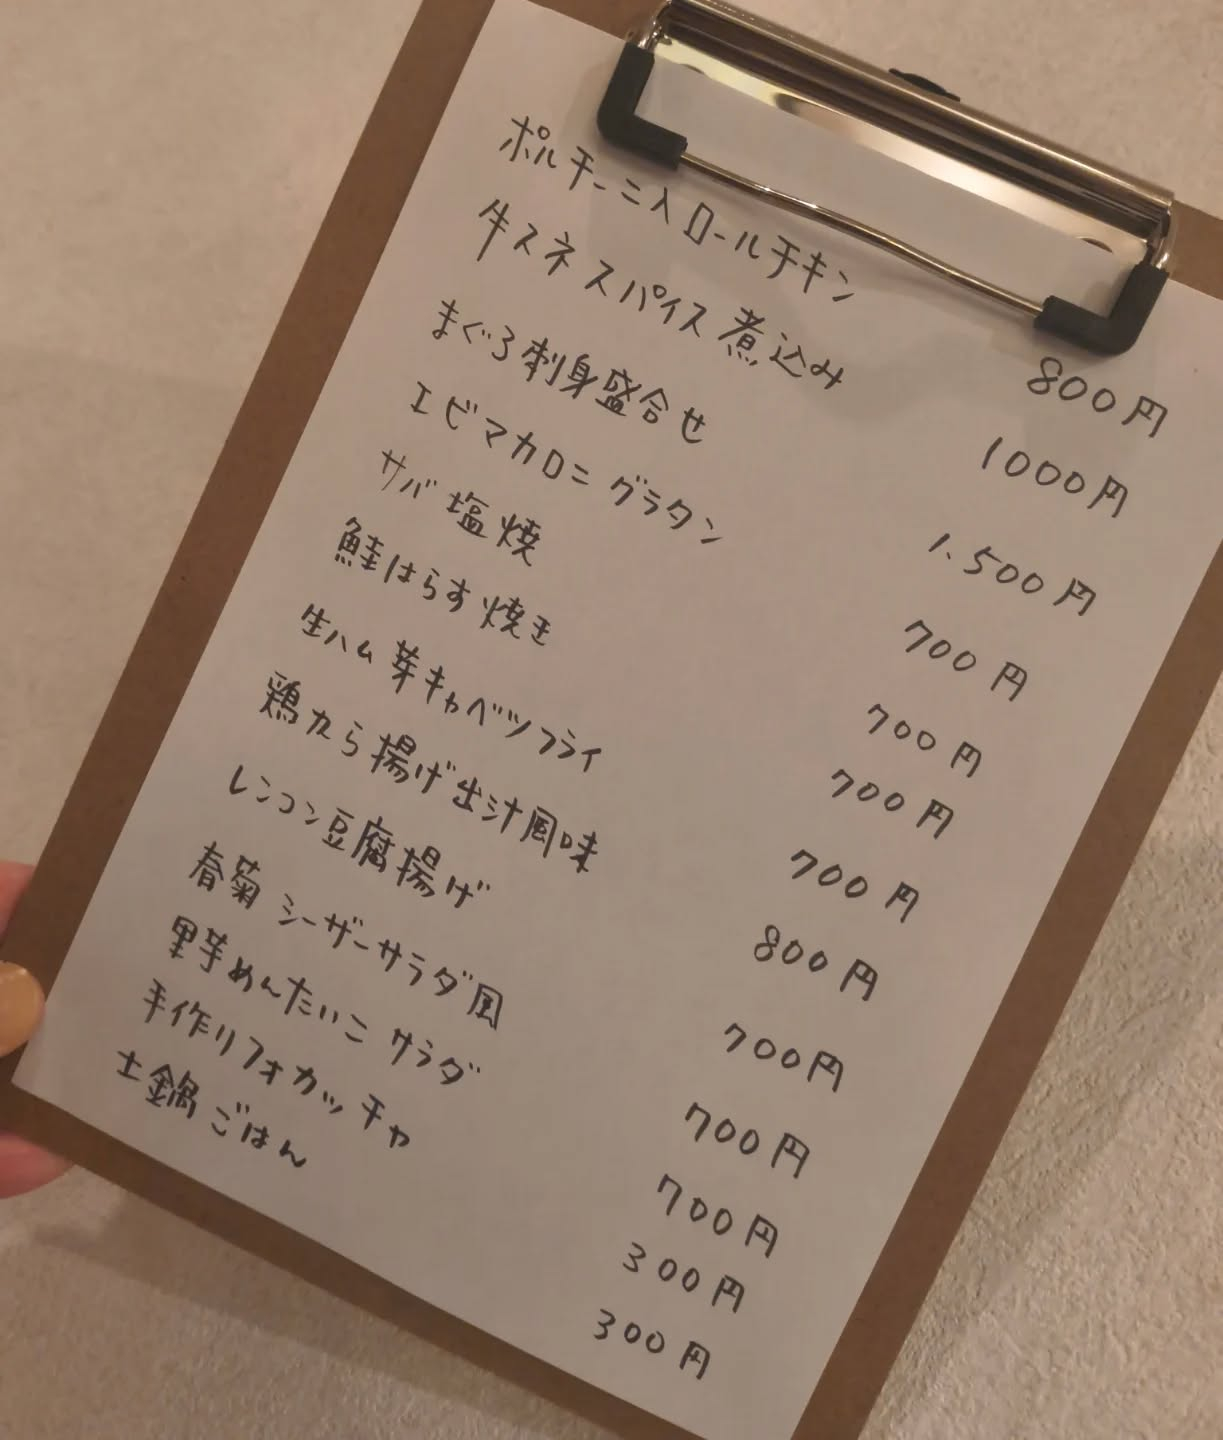 ポルチーニ入ロールチキン 800円
牛スネスパイス煮込み 1000円
まぐろ刺身盛合せ 1.500円
エビマカロニグラタン 700円
サバ塩焼 700円
鮭はらす焼き 700円
生ハム芽キャベツフライ 700円
鶏から揚げ出汁風味 800円
レンコン豆腐揚げ 700円
春菊シーザーサラダ風 700円
里芋めんたいこサラダ 700円
手作りフォカッチャ 300円
土鍋ごはん 300円